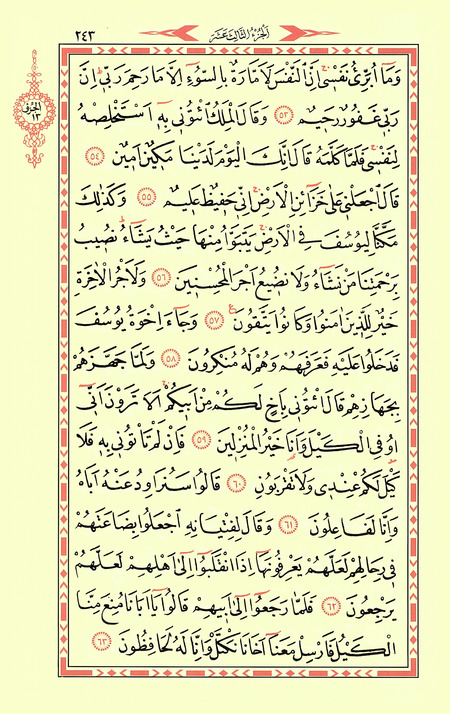 ٢٤٣ اَلْجُزْءُ الثَّالِثَ عَشَرَ
اَلْجُزْءُ
١٣
وَمَٓا اُبَرِّئُ نَفْس۪يۚ اِنَّ النَّفْسَ لَاَمَّارَةٌ بِالسُّٓوءِ اِلَّا مَا رَحِمَ رَبّ۪يۜ اِنَّ
رَبّ۪ي غَفُورٌ رَح۪يمٌ ﴿٥٣﴾ وَقَالَ الْمَلِكُ ائْتُون۪ي بِه۪ٓ اَسْتَخْلِصْهُ
لِنَفْس۪يۚ فَلَمَّا كَلَّمَهُ قَالَ اِنَّكَ الْيَوْمَ لَدَيْنَا مَك۪ينٌ اَم۪ينٌ ﴿٥٤﴾
قَالَ اجْعَلْن۪ي عَلٰى خَزَٓائِنِ الْاَرْضِۚ اِنّ۪ي حَف۪يظٌ عَل۪يمٌ ﴿٥٥﴾ وَكَذٰلِكَ
مَكَّنَّا لِيُوسُفَ فِي الْاَرْضِۚ يَتَبَوَّاُ مِنْهَا حَيْثُ يَشَٓاءُۜ نُص۪يبُ
بِرَحْمَتِنَا مَنْ نَشَٓاءُ وَلَا نُض۪يعُ اَجْرَ الْمُحْسِن۪ينَ ﴿٥٦﴾ وَلَاَجْرُ الْاٰخِرَةِ
خَيْرٌ لِلَّذ۪ينَ اٰمَنُوا وَكَانُوا يَتَّقُونَ۟ ﴿٥٧﴾ وَجَٓاءَ اِخْوَةُ يُوسُفَ
فَدَخَلُوا عَلَيْهِ فَعَرَفَهُمْ وَهُمْ لَهُ مُنْكِرُونَ ﴿٥٨﴾ وَلَمَّا جَهَّزَهُمْ
بِجَهَازِهِمْ قَالَ ائْتُون۪ي بِاَخٍ لَكُمْ مِنْ اَب۪يكُمْۚ اَلَا تَرَوْنَ اَنّ۪ٓي
اُو۫فِي الْكَيْلَ وَاَنَا۬ خَيْرُ الْمُنْزِل۪ينَ ﴿٥٩﴾ فَاِنْ لَمْ تَأْتُون۪ي بِه۪ فَلَا
كَيْلَ لَكُمْ عِنْد۪ي وَلَا تَقْرَبُونِ ﴿٦٠﴾ قَالُوا سَنُرَاوِدُ عَنْهُ اَبَاهُ
وَاِنَّا لَفَاعِلُونَ ﴿٦١﴾ وَقَالَ لِفِتْيَانِهِ اجْعَلُوا بِضَاعَتَهُمْ
ف۪ي رِحَالِهِمْ لَعَلَّهُمْ يَعْرِفُونَهَٓا اِذَا انْقَلَبُٓوا اِلٰٓى اَهْلِهِمْ لَعَلَّهُمْ
يَرْجِعُونَ ﴿٦٢﴾ فَلَمَّا رَجَعُٓوا اِلٰٓى اَب۪يهِمْ قَالُوا يَٓا اَبَانَا مُنِعَ مِنَّا
الْكَيْلُ فَاَرْسِلْ مَعَنَٓا اَخَانَا نَكْتَلْ وَاِنَّا لَهُ لَحَافِظُونَ ﴿٦٣﴾